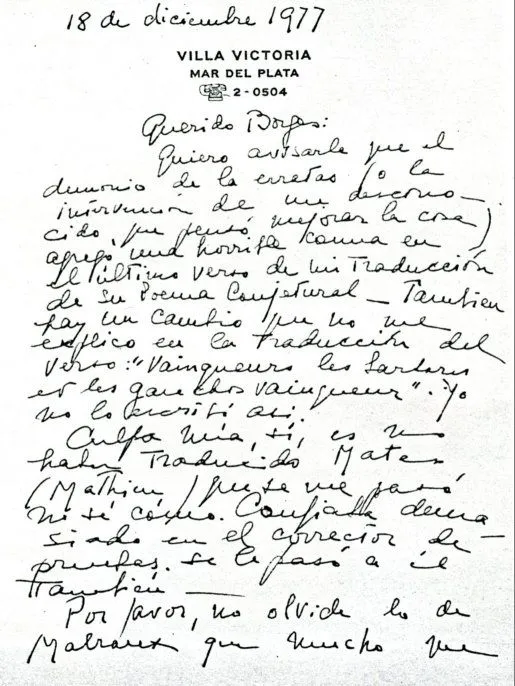 18 de diciembre 1977
VILLA VICTORIA
MAR DEL PLATA
2-0504
Querido Borges:
Quiero avisarle que el
demonio de la erratas (o la
intervención de un descono-
cido, que pensó mejorar la cosa)
agregó una horrible comma en
el último verso de mi traducción
de su Poema Conjetural — También
hay un cambio que no me
explico en la traducción del
verso: "Vainqueurs les
et les gauchos vainqueur". Yo
no lo escribí así.
Culpa mía, sí, es no
haber traducido Mateo
(Mathieu) que se me pasó
ni sé cómo. Confiaba dema-
siado en el corrector de
pruebas. Se le pasó a él
también —
Por favor, no olvide lo de
Malraux que mucho me